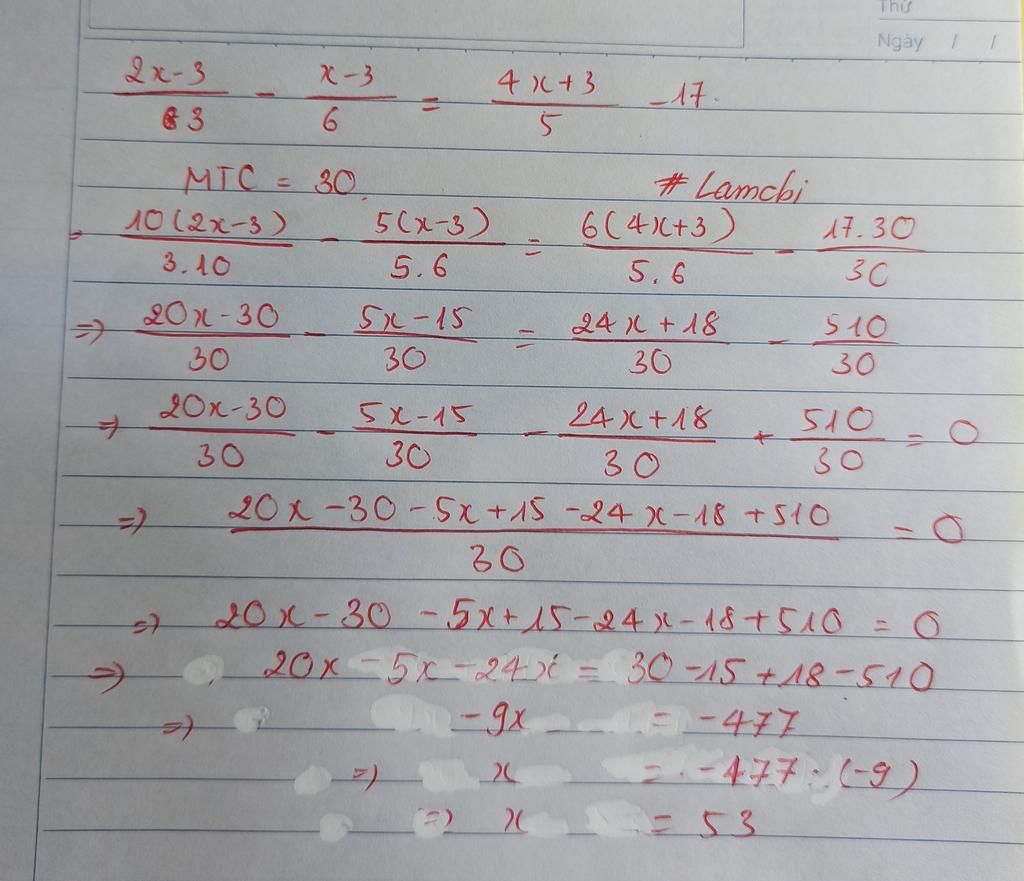 Thứ
Ngày / /
(2x-3)/3 - (x-3)/6 = (4x+3)/5 -17.
MTC = 30. # Lamchi
= 10(2x-3)/3.10 - 5(x-3)/5.6 = 6(4x+3)/5.6 - 17.30/30
=> (20x-30)/30 - (5x-15)/30 = (24x+18)/30 - 510/30
=> (20x-30)/30 - (5x-15)/30 - (24x+18)/30 + 510/30 = 0
=> (20x-30-5x+15-24x-18+510)/30 = 0
=> 20x-30-5x+15-24x-18+510 = 0
=> 20x-5x-24x = 30-15+18-510
=> -9x = -477
=> x = -477:(-9)
=> x = 53